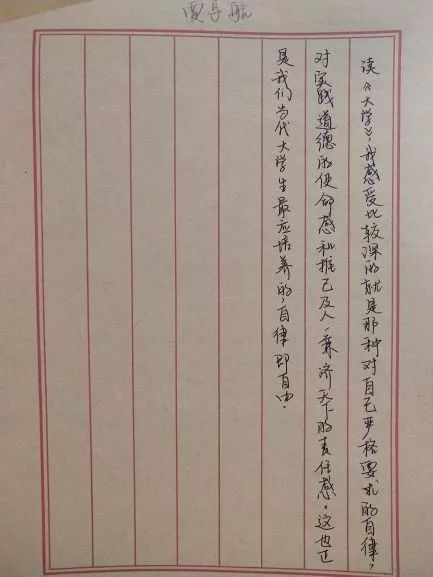 导航
读《大学》，我感受比较深的就是那种对自己严格要求的自律，
对实践道德的使命感和推己及人，兼济天下的责任感。这也正
是我们当代大学生最应培养的，自律即自由.